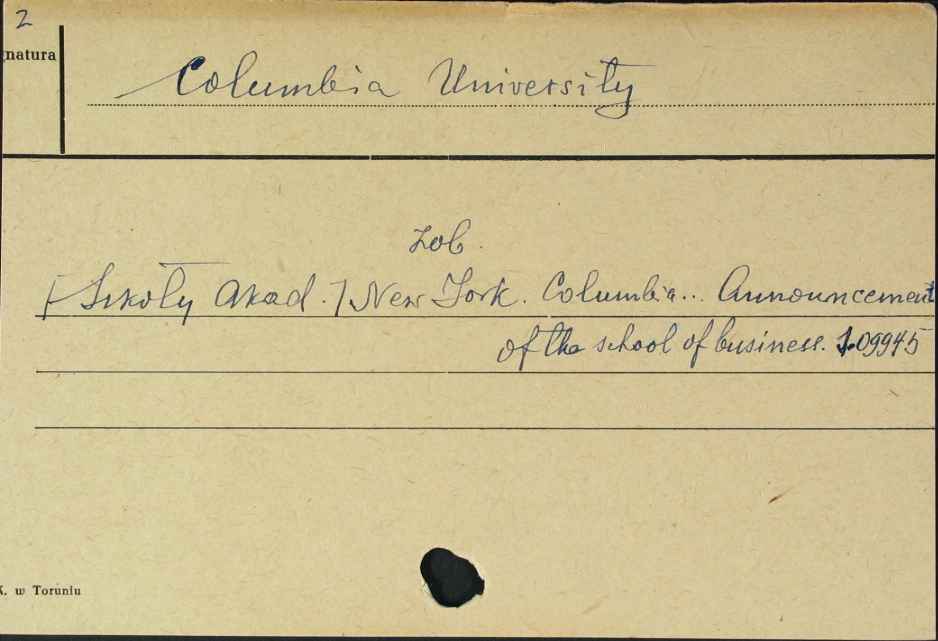 2
gnatura
Columbia University
zob.
[Szkoły Akad.] New York. Columbia... Announcement
of the school of business. 1.09945
K. w Toruniu